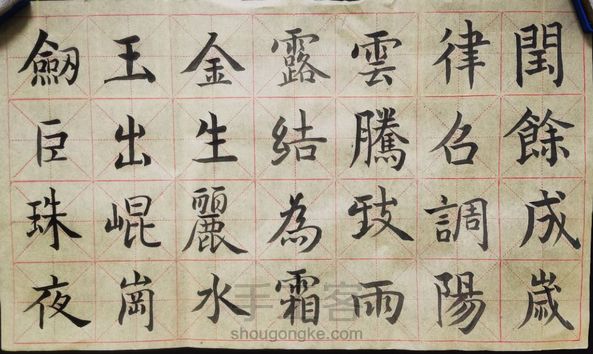 閏餘成歲
律召調陽
雲騰致雨
露結為霜
金生麗水
玉出崐崗
劒巨珠夜
手工客
shougongke.com